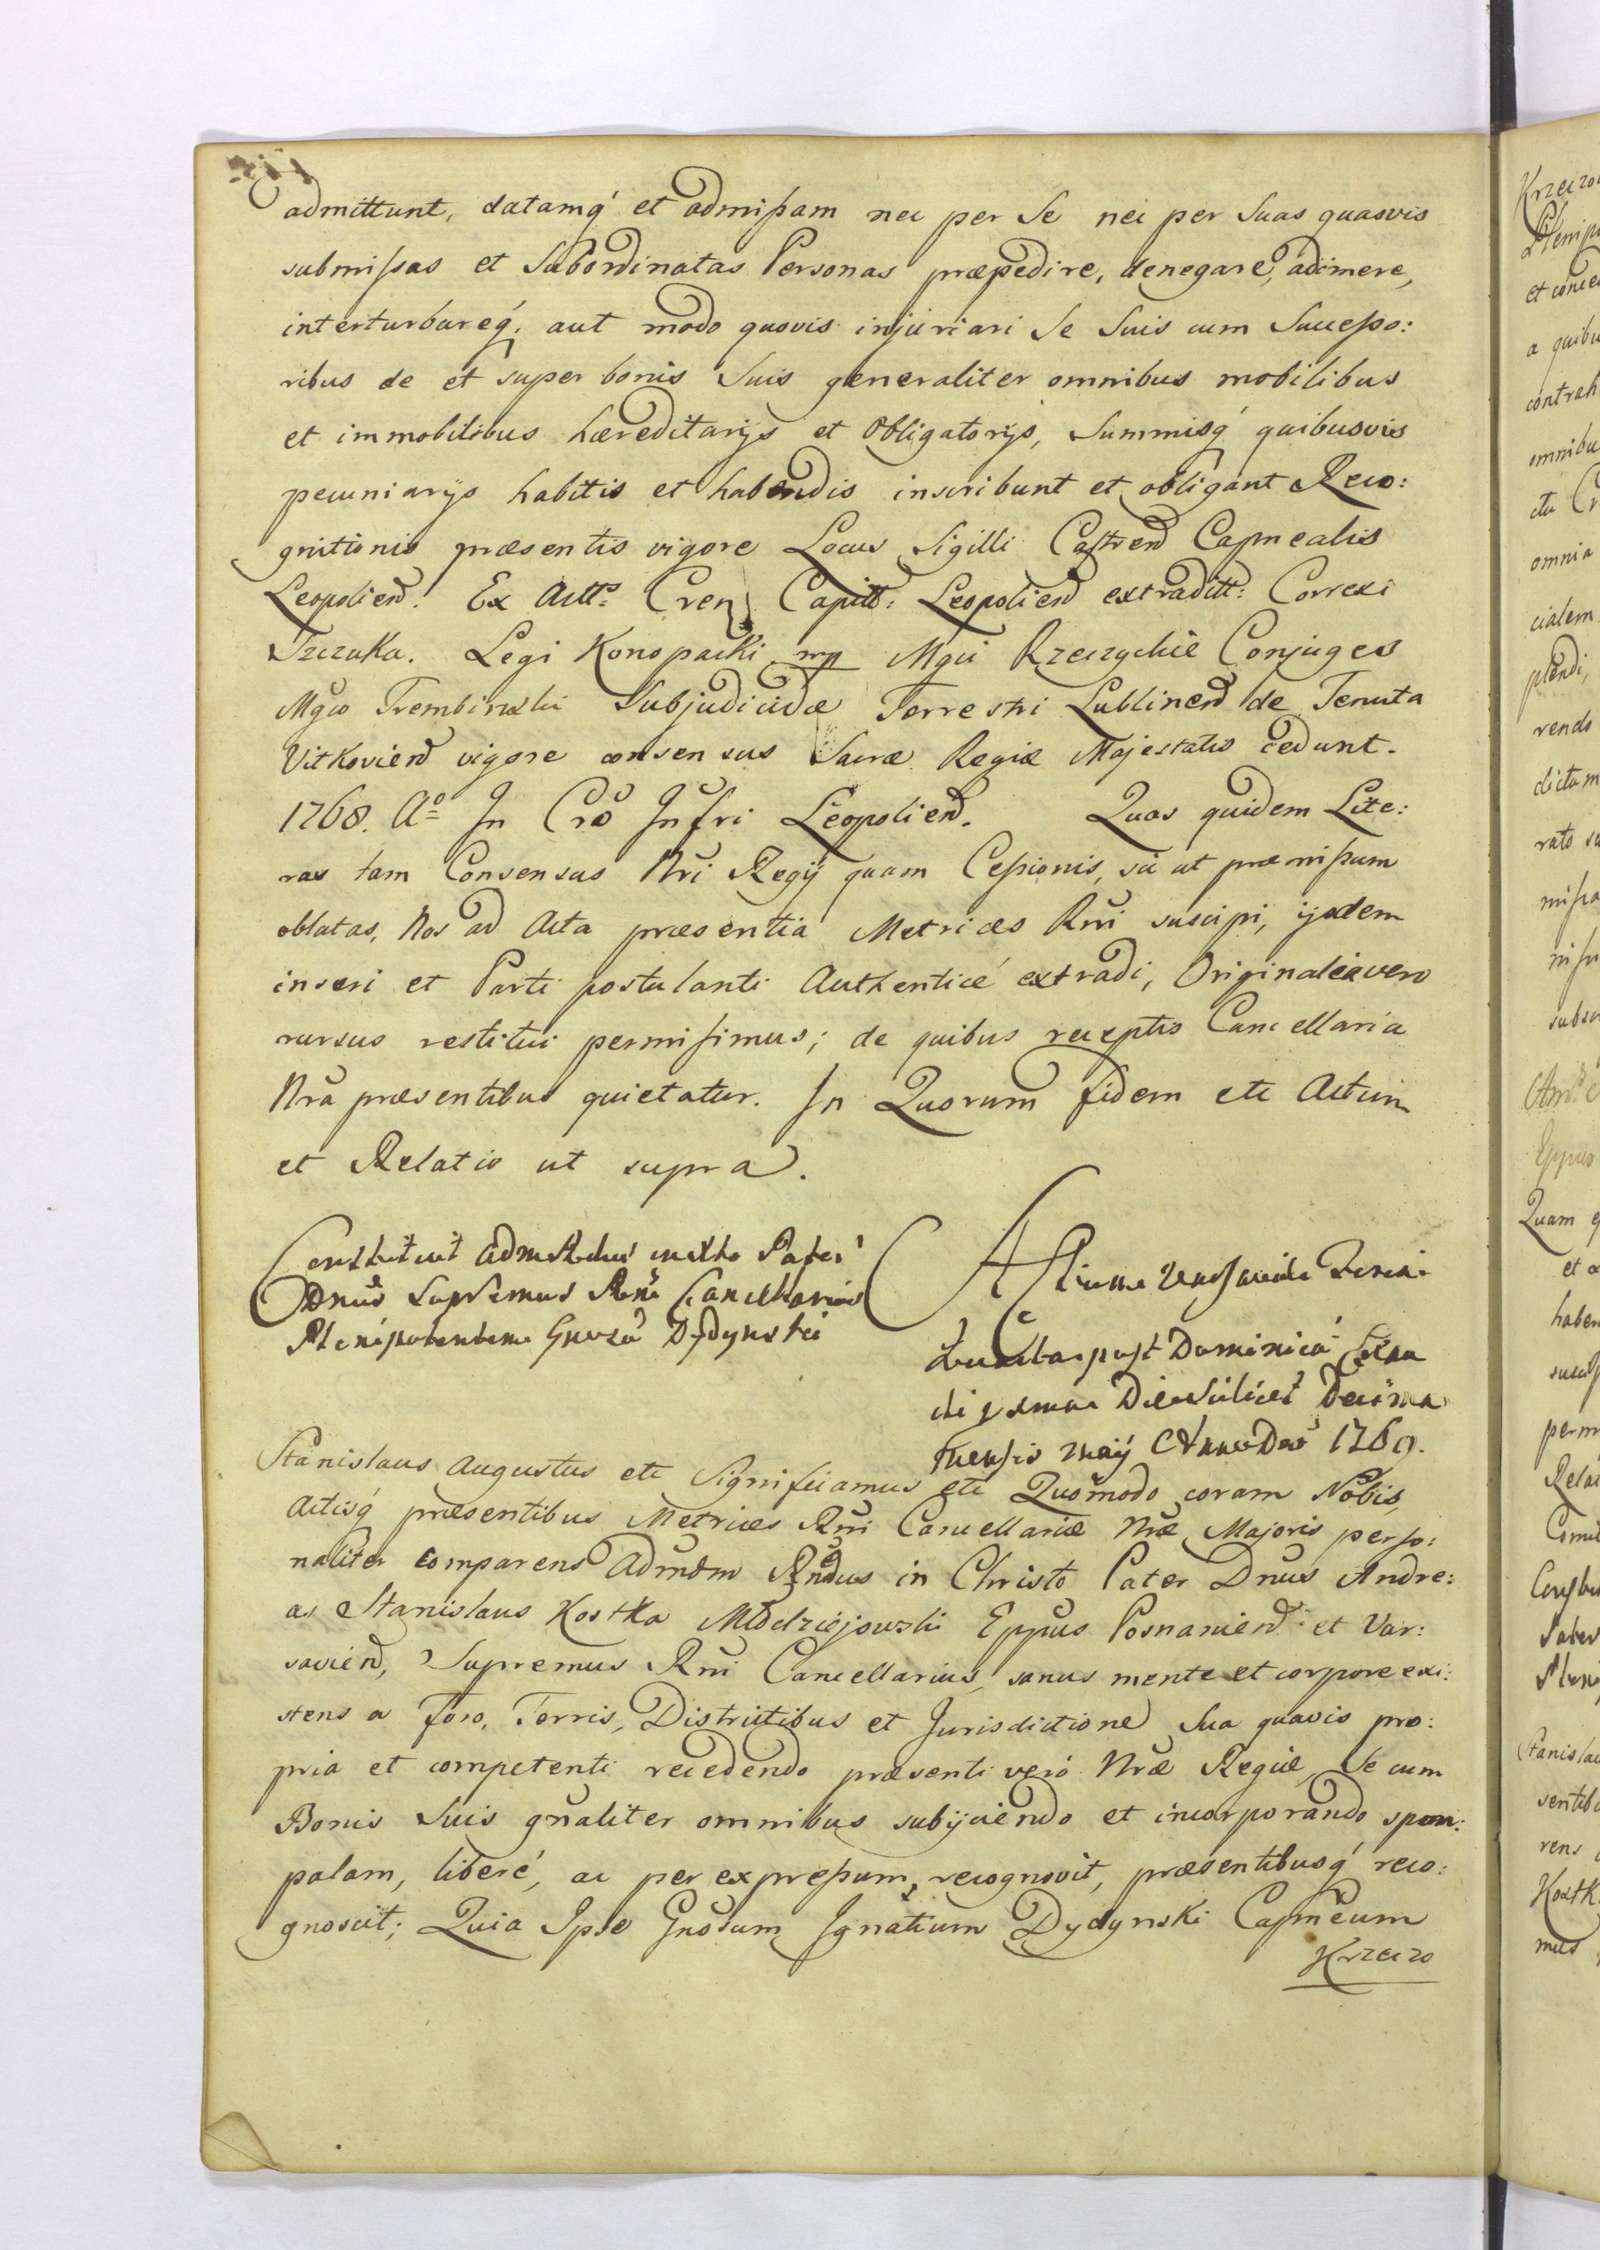 admittunt, datamq́ et admißam nec per Se nec per Suas quasvis
submißas et Subordinatas Personas præpedire, denegare, adimere,
interturbareq́; aut modo quovis injuriari Se Suis cum Succeßo:
ribus de et super bonis Suis generaliter omnibus mobilibus
et immobilibus hæreditarijs et Obligatorijs, Summisq́ quibusvis
pecuniarijs habitis et habendis inscribunt et obligant Reco:
gnitionis præsentis vigore Locus Sigilli Castren Capnealis
Leopolien. Ex Actt: Cren Capitt: Leopolien extraditt: Correxi
Szczuka. Legi Konopacki mp Mgci Rzeczychie Conjuges
Mgco Trembinski Subjudici Terrestri Lublinen de Tenuta
Vitkovien vigore consensus Sacræ Regiæ Majestatis cedunt.
1768. Aº In Cro Infri Leopolien. Quas quidem Lite:
ras tam Consensus Nri Regij quam Ceßionis, sic ut præmißum
oblatas, Nos ad Acta præsentia Metrices Rni suscipi, ijsdem
inseri et Parti postulanti Authenticé extradi, Originalia vero
rursus restitui permisimus; de quibus receptis Cancellaria
Nra præsentibus quietatur. In Quorum fidem etc Actum
et Relatio ut supra.
Constituit Admrdus in Xto Pater
Dnus Supremus Rni Cancellarius
Plenipotentem Gnosu Dydynski
Actum Varsaviæ Feria
quarta post Dominicā
Die Scilicet Decima
Mensis Maij Anno Dni 1769.
Stanislaus Augustus etc Significamus etc Quomodo coram Nobis,
Actisq́ præsentibus Metrices Rni Cancellariæ Nræ Majoris perso:
naliter comparens Admdm Rndus in Christo Pater Dnus Andre:
as Stanislaus Kostka Młodziejowski Eppus Posnanien et Var:
savien, Supremus Rni Cancellarius, sanus mente et corpore exi:
stens a foro, Terris, Districtibus et Jurisdictione Sua quavis pro:
pria et competenti recedendo præsenti veró Nræ Regiæ, Se cum
Bonis Suis gnaliter omnibus subijciendo et incorporando spon:
palam, liberé, ac per expreßum, recognovit, præsentibusq́ reco:
gnoscit; Quia Ipse Gnosum Ignatium Dydynski Capneum
Krzeczo